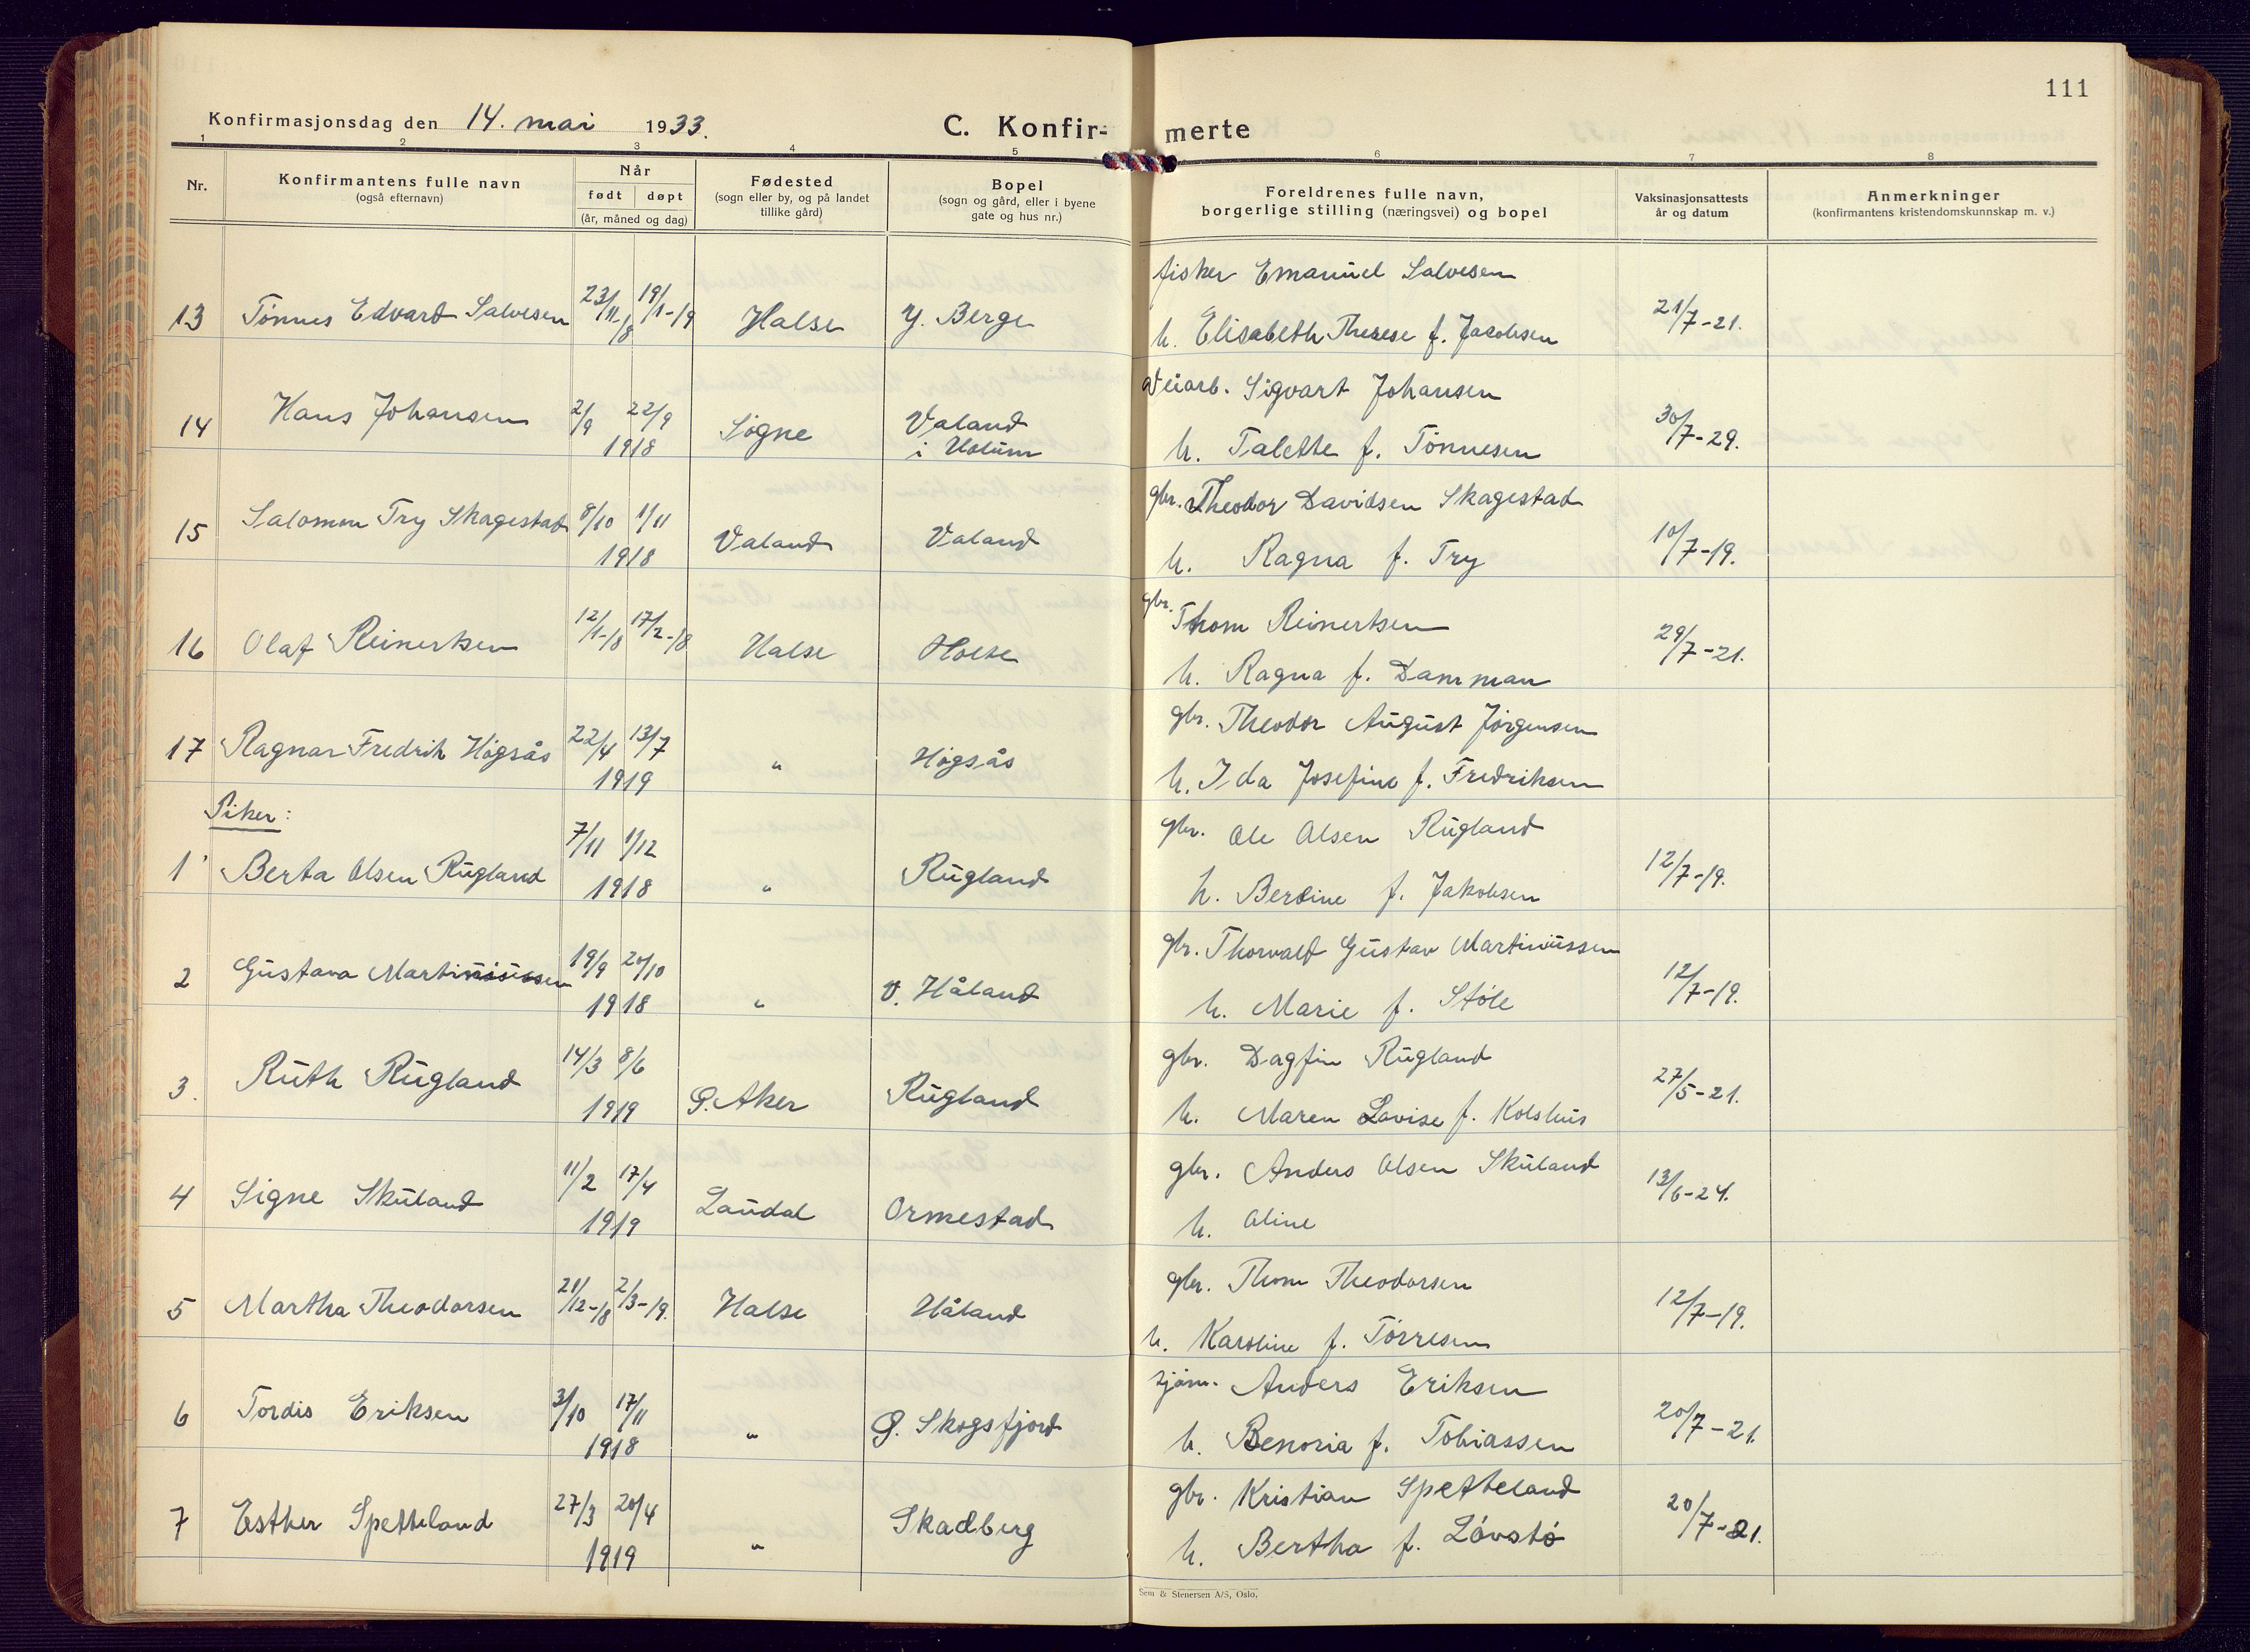 111
Konfirmasjonsdag den 14. mai 1933.
C. Konfir- merte
1 2 3 4 5 6 7 8
Nr.
Konfirmantens fulle navn
(også efternavn)
Når
født døpt
(år, måned og dag)
Fødested
(sogn eller by, og på landet
tillike gård)
Bopel
(sogn og gård, eller i byene
gate og hus nr.)
Foreldrenes fulle navn,
borgerlige stilling (næringsvei) og bopel
Vaksinasjonsattests
år og datum
Anmerkninger
(konfirmantens kristendomskunnskap m. v.)
fisker Emanuel Salvesen
13 Tønnes Edvard Salvesen 23/11-18 19/1-19 Halse Y. Berge 21/7-21.
h. Elisabeth Therese f. Jacobsen
veiarb. Sigvart Johansen
14 Hans Johansen 2/9 22/9 1918 Søgne Valand i Holum 30/7-29.
h. Talette f. Tønnesen
gbr. Theodor Davidsen Skagestad
15 Salomon Try Skagestad 8/10 1/11 1918 Valand Valand 10/7-19.
h. Ragna f. Try
gbr. Thom Reinertsen
16 Olaf Reinertsen 12/1-18 17/2-18 Halse Halse 29/7-21.
h. Ragna f. Damman
gbr. Theodor August Jørgensen
17 Ragnar Fredrik Høgsås 22/4 13/7 1919 " Høgsås
h. Ida Josefine f. Fredriksen
Piker:
gbr. Ole Olsen Rugland
1 Berta Olsen Rugland 7/11 1/12 1918 " Rugland 12/7-19.
h. Berdine f. Jakobsen
gbr. Thorvald Gustav Martinussen
2 Gustava Martinussen 19/9 20/10 1918 " V. Håland 12/7-19.
h. Marie f. Støle
gbr. Dagfin Rugland
3. Ruth Rugland 14/3 8/6 1919 Ø. Aker Rugland 27/5-21.
h. Maren Lovise f. Kolshus
gbr. Anders Olsen Skuland
4 Signe Skuland 11/2 17/4 1919 Laudal Ormestad 13/6-24.
h. Aline
gbr. Thom Theodorsen
5 Martha Theodorsen 21/12-18 2/3-19. Halse Håland 12/7-19.
h. Karoline f. Tørresen
sjøm. Anders Eriksen
6 Tordis Eriksen 3/10 17/11 1918 " Ø. Skogsfjord 20/7-21.
h. Benoria f. Tobiassen
gbr. Kristian Spetteland
7 Esther Spetteland 27/3 20/4 1919 " Skadberg 20/7-21.
h. Bertha f. Løvstø
Sem & Stenersen A/S, Oslo.